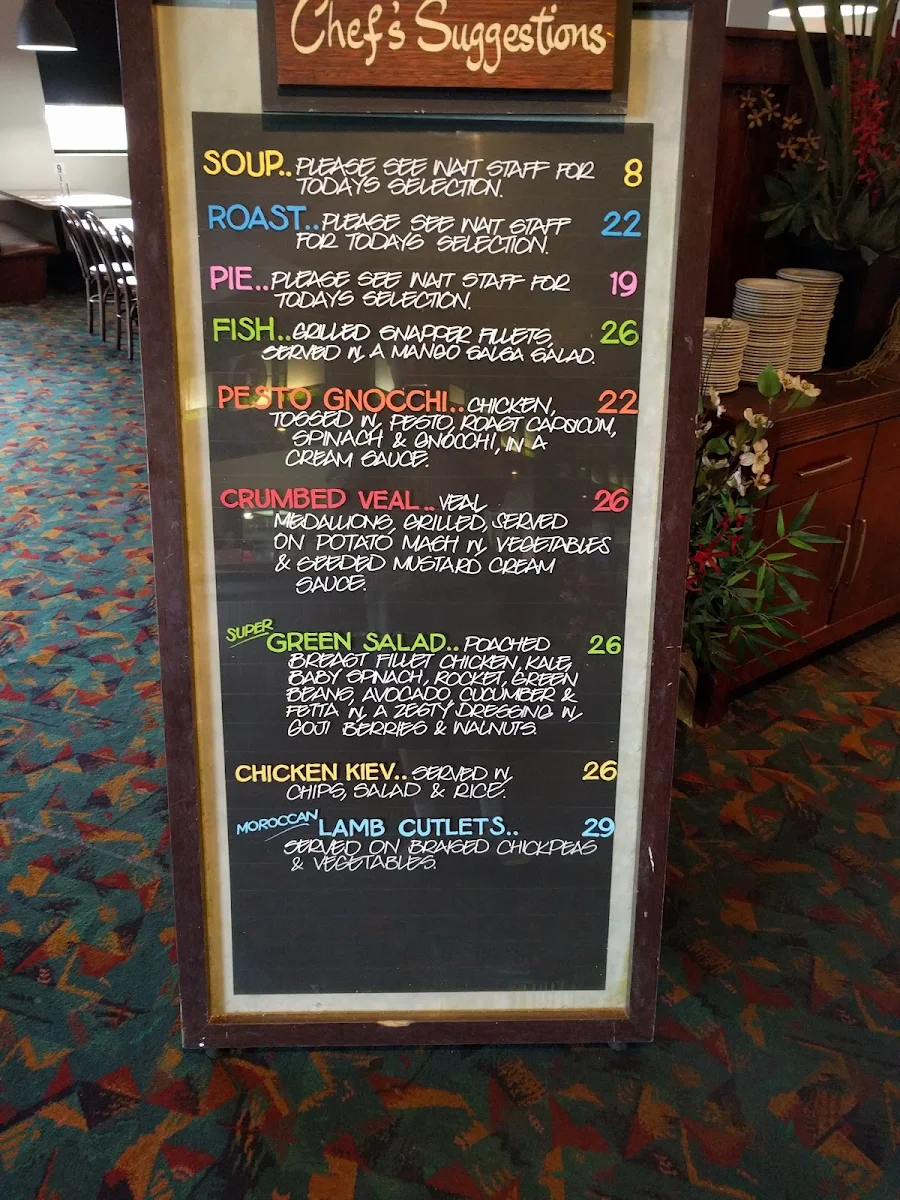 Chef's Suggestions
SOUP.. PLEASE SEE WAIT STAFF FOR 8
TODAYS SELECTION.
ROAST.. PLEASE SEE WAIT STAFF 22
FOR TODAYS SELECTION.
PIE.. PLEASE SEE WAIT STAFF FOR 19
TODAYS SELECTION.
FISH.. GRILLED SNAPPER FILLETS, 26
SERVED W, A MANGO SALSA SALAD.
PESTO GNOCCHI.. CHICKEN, 22
TOSSED W, PESTO, ROAST CAPSICUM,
SPINACH & GNOCCHI, IN A
CREAM SAUCE.
CRUMBED VEAL.. VEAL 26
MEDALLIONS, GRILLED, SERVED
ON POTATO MASH W, VEGETABLES
& SEEDED MUSTARD CREAM
SAUCE.
SUPER GREEN SALAD.. POACHED 26
BREAST FILLET CHICKEN, KALE,
BABY SPINACH, ROCKET, GREEN
BEANS, AVOCADO, CUCUMBER &
FETTA W, A ZESTY DRESSING W,
GOJI BERRIES & WALNUTS.
CHICKEN KIEV.. SERVED W, 26
CHIPS, SALAD & RICE.
MOROCCAN LAMB CUTLETS.. 29
SERVED ON BRAISED CHICKPEAS
& VEGETABLES.